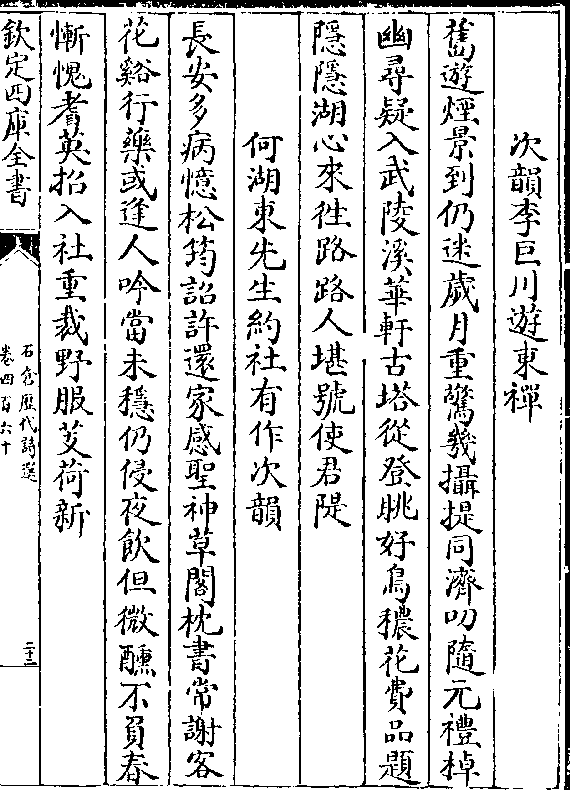 次韻李巨川遊東禪
舊遊煙景到仍迷歲月重驚幾攝提同濟叨隨元禮棹
幽尋疑入武陵溪華軒古塔從登眺好鳥穠花費品題
隱隱湖心來徃路路人堪號使君隄
何湖東先生約社有作次韻
長安多病憶松筠詔許還家感聖神草閣枕書常謝客
花谿行藥或逢人吟當未穩仍侵夜飲但微醺不負春
慚愧耆英招入社重裁野服芰荷新
欽定四庫全書
石倉歷代詩選
卷四百六十
二十二